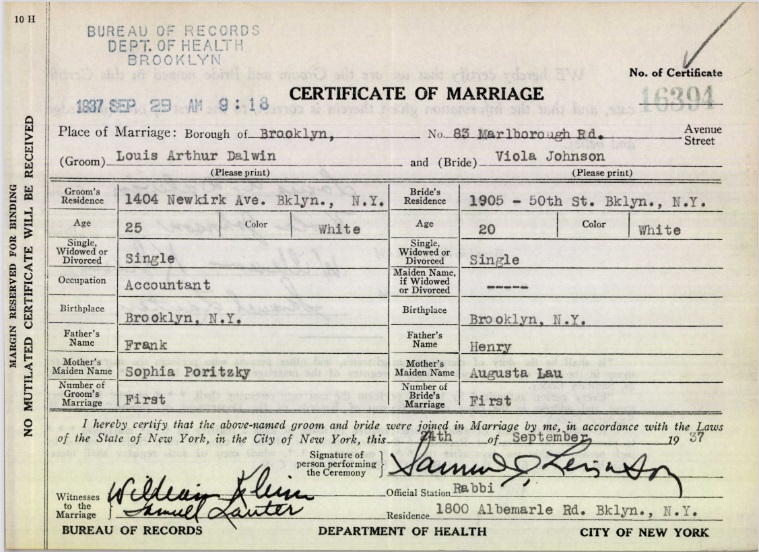 10 H
BUREAU OF RECORDS
DEPT. OF HEALTH
BROOKLYN
1937 SEP 29 AM 9:18
No. of Certificate
16394
CERTIFICATE OF MARRIAGE
Place of Marriage: Borough of Brooklyn, No. 83 Marlborough Rd. Avenue Street
(Groom) Louis Arthur Dalwin and (Bride) Viola Johnson
(Please print) (Please print)
Groom's Residence 1404 Newkirk Ave. Bklyn., N.Y. Bride's Residence 1905 - 50th St. Bklyn., N.Y.
Age 25 Color White Age 20 Color White
Single, Widowed or Divorced Single Single, Widowed or Divorced Single
Occupation Accountant Maiden Name, if Widowed or Divorced -----
Birthplace Brooklyn, N.Y. Birthplace Brooklyn, N.Y.
Father's Name Frank Father's Name Henry
Mother's Maiden Name Sophia Poritzky Mother's Maiden Name Augusta Lau
Number of Groom's Marriage First Number of Bride's Marriage First
I hereby certify that the above-named groom and bride were joined in Marriage by me, in accordance with the Laws
of the State of New York, in the City of New York, this 24th of September 1937
Signature of person performing the Ceremony Samuel J. Levinson
Witnesses to the Marriage William Klein
Samuel Lauter
Official Station Rabbi
Residence 1800 Albemarle Rd. Bklyn., N.Y.
BUREAU OF RECORDS DEPARTMENT OF HEALTH CITY OF NEW YORK
MARGIN RESERVED FOR BINDING
NO MUTILATED CERTIFICATE WILL BE RECEIVED